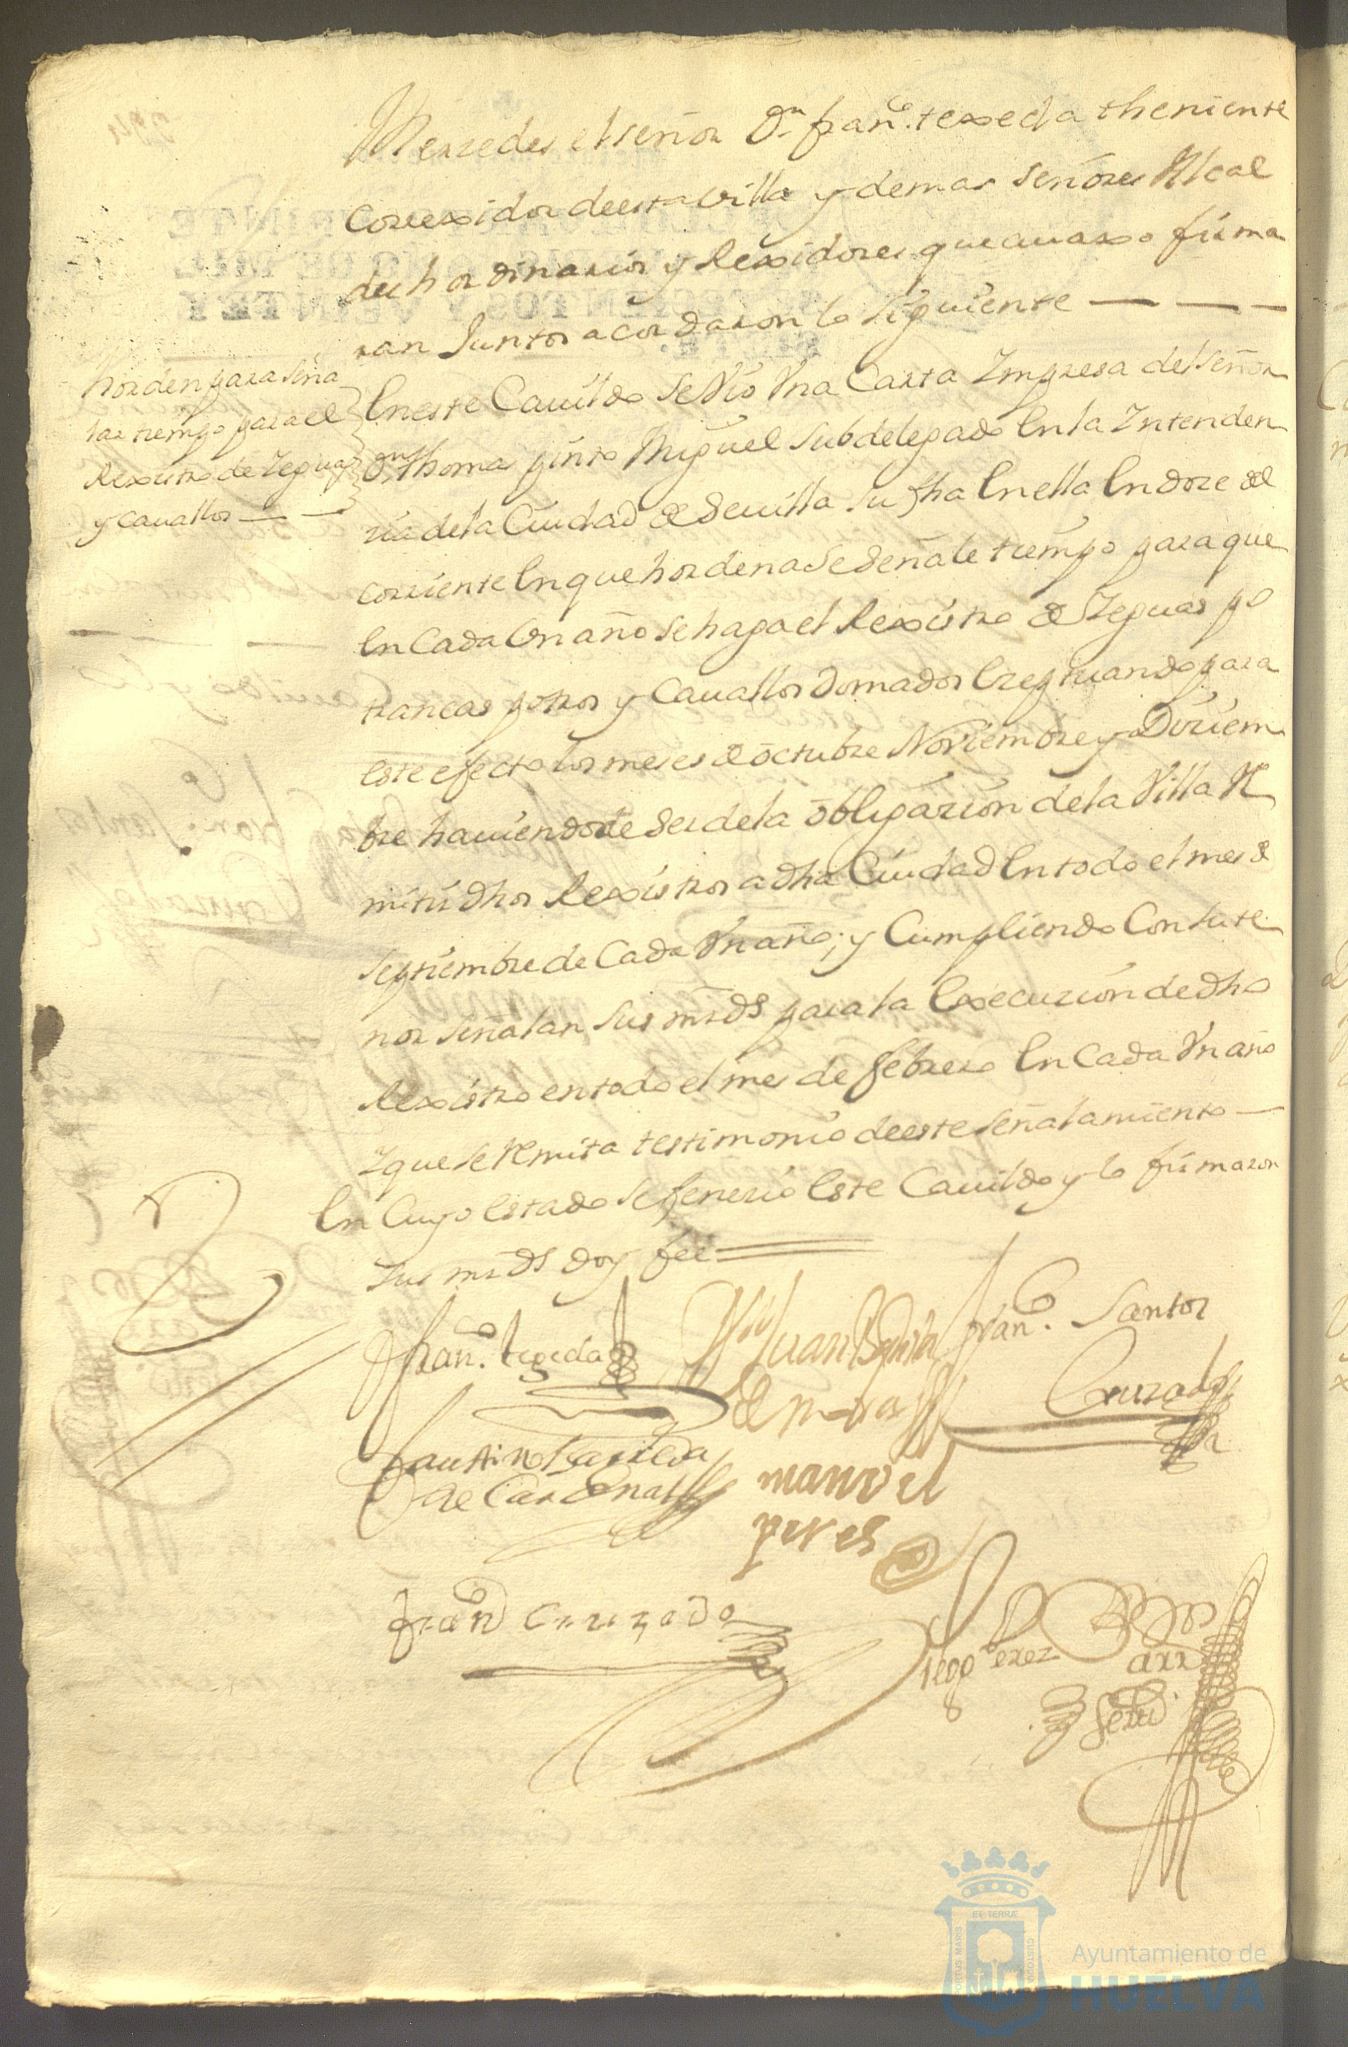 Merzedes el señor Dn. franco. texeda theniente
Correxidor de esta Villa y demas señores Alcal
des hordinarios y Rexidores que auaxo firma
ran Juntos acordaron lo siguiente — — —
horden para seña
lar tiempo para el
Rexistro de Zeguas
y cauallos — —
En este Cauildo se Vio Vna Carta Impresa del señor
Dn. thomas pinto Miguel subdelegado En la Intenden
zia de la Ciudad de Seuilla su fha En ella En doze del
corriente En que hordena se señale tiempo para que
En Cada Un año se haga el Rexistro de Zeguas po
trancas potros y Cauallos Domados Exeptuando para
este efecto los meses de octubre Noviembre y Diziem
bre hauiendo de ser de la obligazion de la Villa Re
mitir dhos Rexistros a dha Ciudad En todo el mes de
septiembre de Cada Vn año; y Cumpliendo Con su te
nor señalan sus mrds para la Execuzion de dho
Rexistro en todo el mes de febrero En Cada Vn año
Y que se Remita testimonio de este señalamiento —
En Cuyo estado se fenezio Este Cauildo y lo firmaron
sus mrds doy fee
franco. texeda
Juan
de mora
franco. Santos
Cruzado
faustino
de Cardenas
manuel
peres
franco Cruzado
Diego Perez
Ayuntamiento de
HUELVA